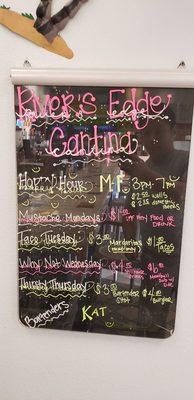 River's Edge
Cantina
Happy Hour M-F 3PM-7PM
$2.50 wells
Mustache Mondays $1 off any food or drink
Taco Tuesday $3 Margaritas $1 Tacos
Why Not Wednesday $4
Thirsty Thursday $3 Bartender Shot $4 Burger
Bartenders
KAT